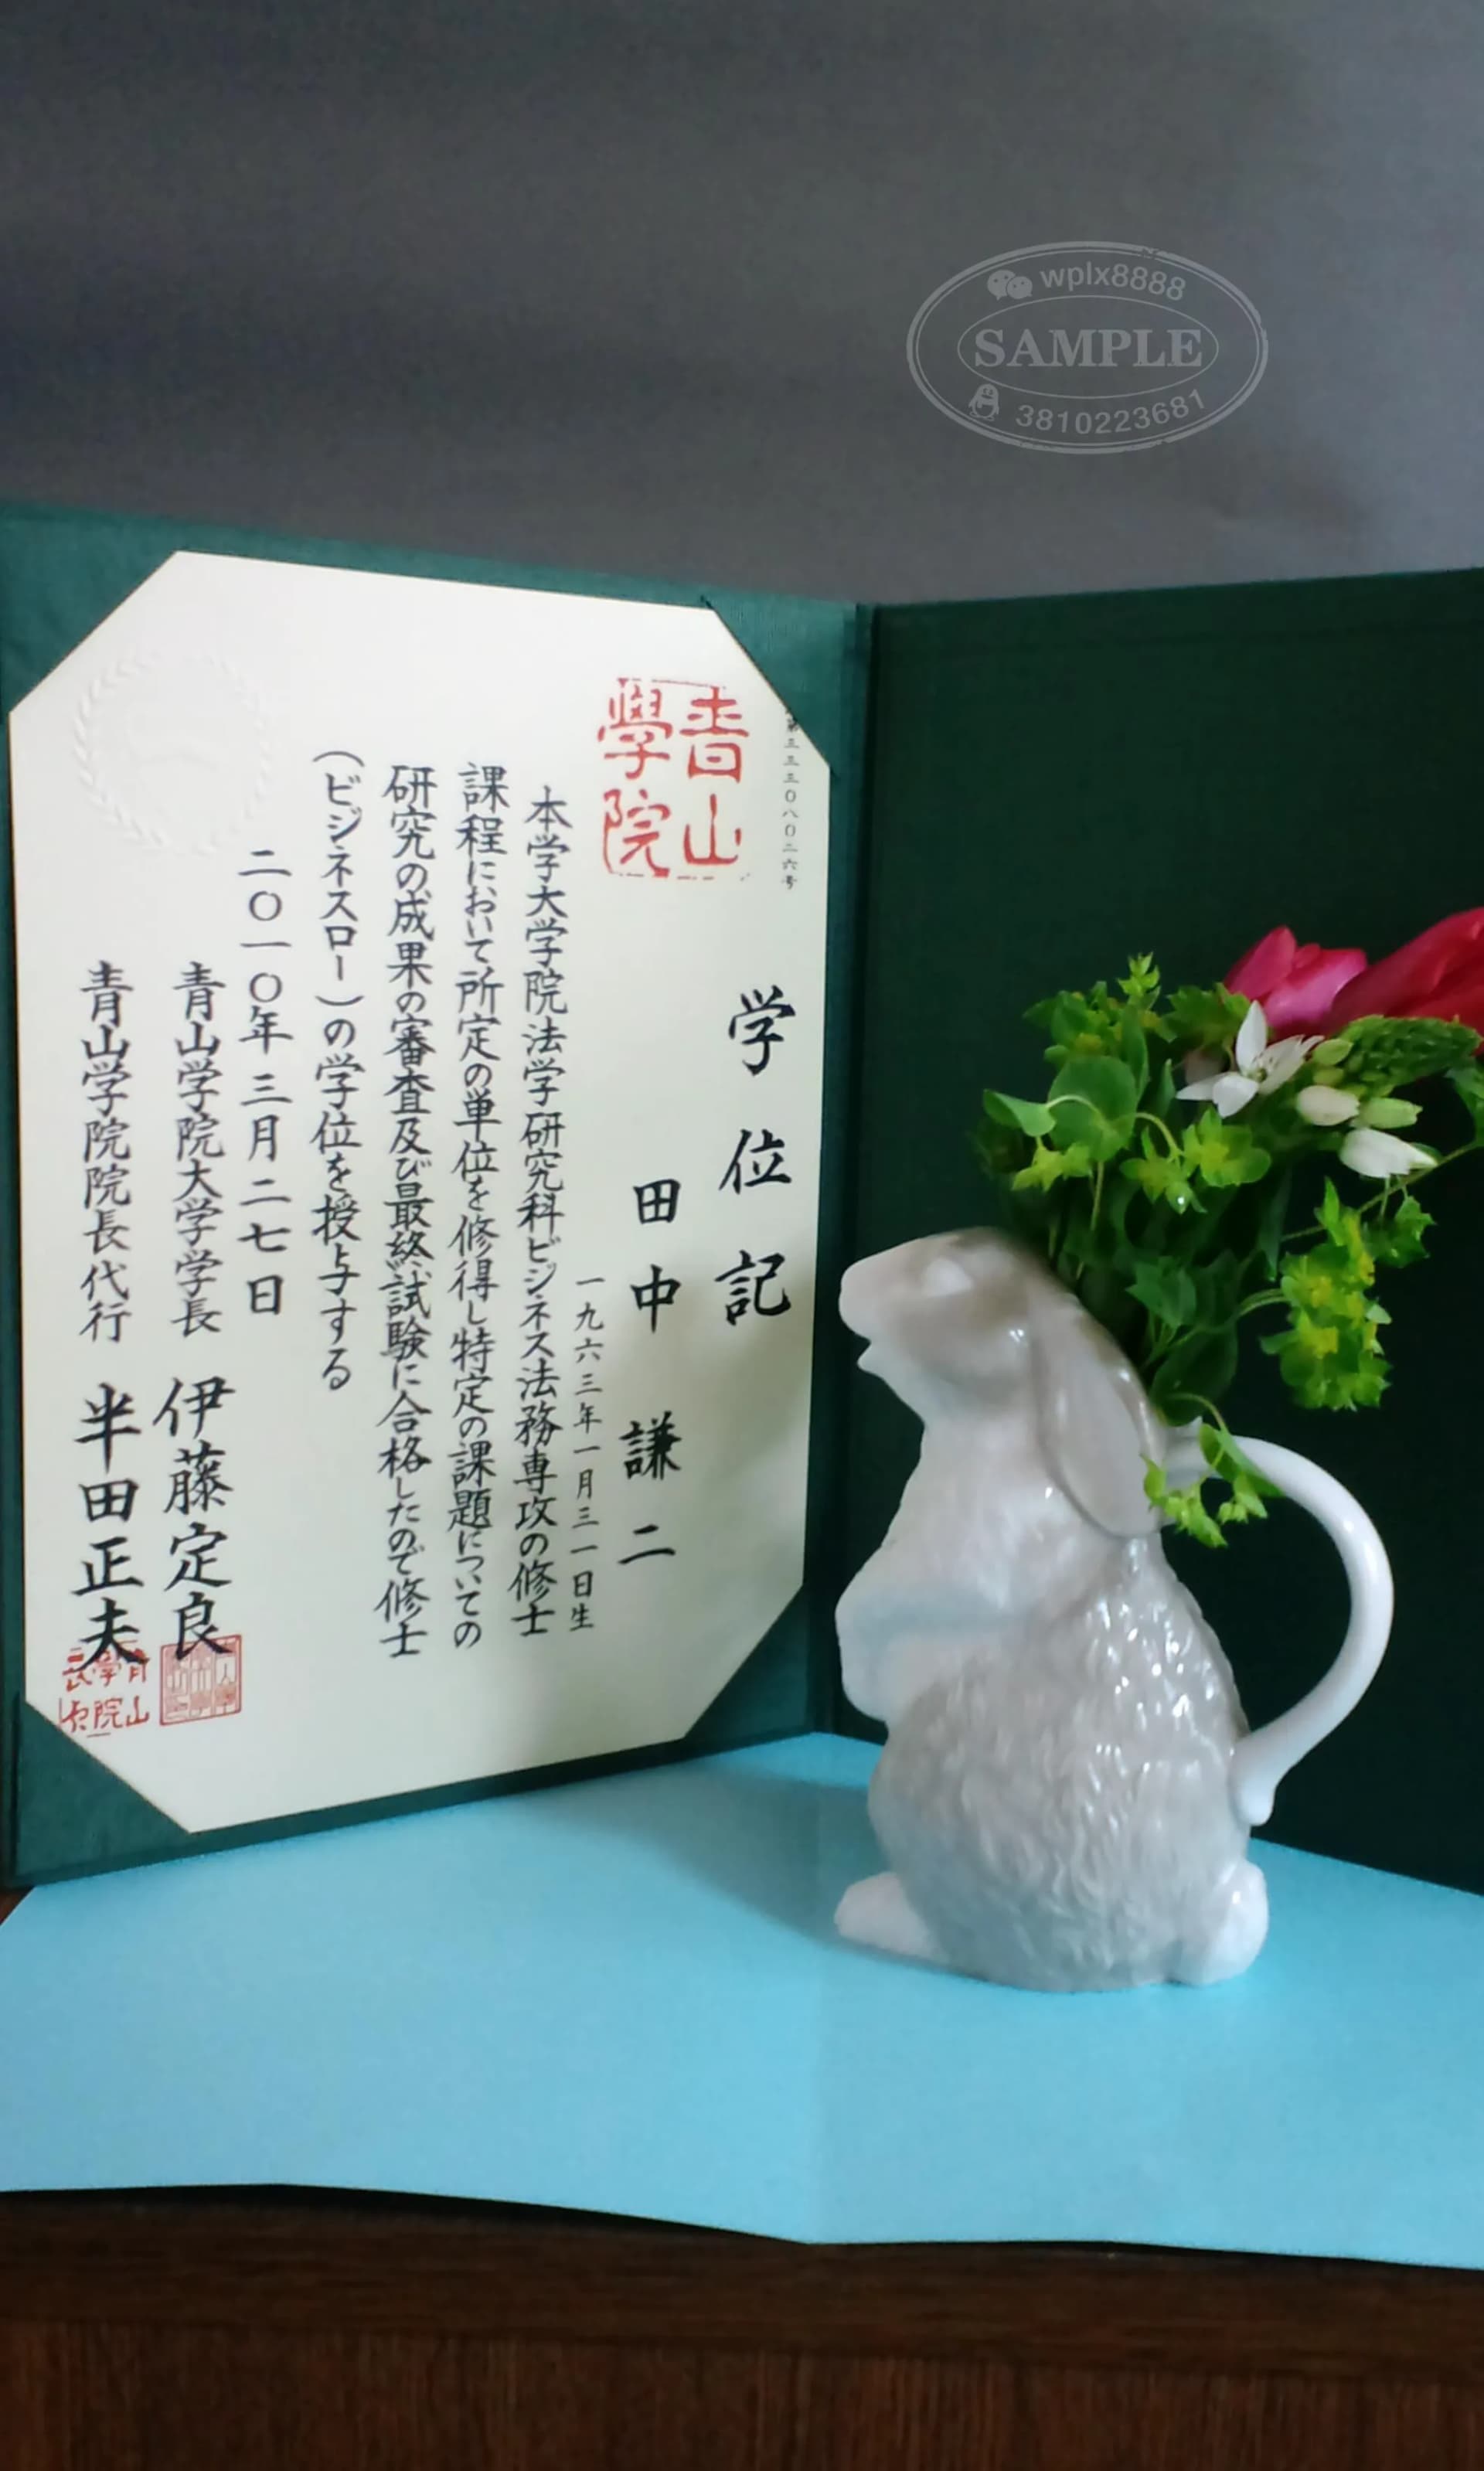 wplx8888
SAMPLE
3810223681
第三三三〇八〇二六号
青山
學院
学位記
田中 謙二
一九六三年一月三一日生
本学大学院法学研究科ビジネス法務専攻の修士
課程において所定の単位を修得し特定の課題についての
研究の成果の審査及び最終試験に合格したので修士
(ビジネスロー)の学位を授与する
二〇一〇年三月二七日
青山学院大学学長 伊藤定良
青山学院院長代行 半田正夫